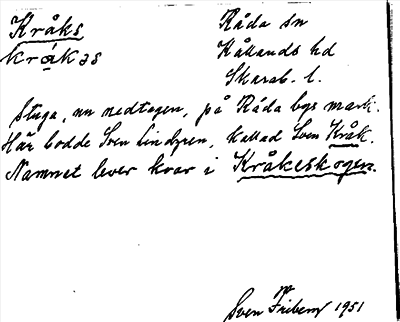 Kråks
Råda sn
krákəs
Kållands hd
Skarab. l.
Stuga, nu nedtagen, på Råda bys mark.
Här bodde Sven Lindgren, kallad Sven Kråk.
Namnet lever kvar i Kråkeskogen.
Sven Friberg 1951